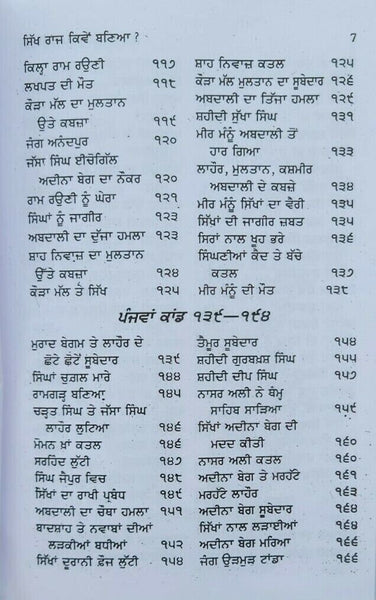 ਸਿੱਖ ਰਾਜ ਕਿਵੇਂ ਬਣਿਆ ? 7
ਕਿਲ੍ਹਾ ਰਾਮ ਰਉਣੀ ੧੧੭
ਲਖਪਤ ਦੀ ਮੌਤ ੧੧੮
ਕੌੜਾ ਮੱਲ ਦਾ ਮੁਲਤਾਨ
ਉਤੇ ਕਬਜ਼ਾ ੧੧੯
ਜੰਗ ਅਨੰਦਪੁਰ ੧੨੦
ਜੱਸਾ ਸਿੰਘ ਈਚੋਗਿੱਲ
ਅਦੀਨਾ ਬੇਗ ਦਾ ਨੌਕਰ ੧੨੦
ਰਾਮ ਰਉਣੀ ਨੂੰ ਘੇਰਾ ੧੨੧
ਸਿੰਘਾਂ ਨੂੰ ਜਾਗੀਰ ੧੨੩
ਅਬਦਾਲੀ ਦਾ ਦੂਜਾ ਹਮਲਾ ੧੨੩
ਸ਼ਾਹ ਨਿਵਾਜ਼ ਦਾ ਮੁਲਤਾਨ
ਉੱਤੇ ਕਬਜ਼ਾ ੧੨੪
ਕੌੜਾ ਮੱਲ ਤੇ ਸਿੱਖ ੧੨੫
ਸ਼ਾਹ ਨਿਵਾਜ਼ ਕਤਲ ੧੨੫
ਕੌੜਾ ਮੱਲ ਮੁਲਤਾਨ ਦਾ ਸੂਬੇਦਾਰ ੧੨੬
ਅਬਦਾਲੀ ਦਾ ਤਿੱਜਾ ਹਮਲਾ ੧੨੯
ਸ਼ਹੀਦੀ ਸੁੱਖਾ ਸਿੰਘ ੧੩੧
ਮੀਰ ਮੰਨੂੰ ਅਬਦਾਲੀ ਤੋਂ
ਹਾਰ ਗਿਆ ੧੩੩
ਲਾਹੌਰ, ਮੁਲਤਾਨ, ਕਸ਼ਮੀਰ
ਅਬਦਾਲੀ ਦੇ ਕਬਜ਼ੇ ੧੩੪
ਮੀਰ ਮੰਨੂੰ ਸਿੱਖਾਂ ਦਾ ਵੈਰੀ ੧੩੫
ਸਿੱਖਾਂ ਦੀ ਜਾਗੀਰ ਜ਼ਬਤ ੧੩੫
ਸਿਰਾਂ ਨਾਲ ਖੂਹ ਭਰੇ ੧੩੬
ਸਿੰਘਣੀਆਂ ਕੈਦ ਤੇ ਬੱਚੇ
ਕਤਲ ੧੩੭
ਮੀਰ ਮੰਨੂੰ ਦੀ ਮੌਤ ੧੩੮
ਪੰਜਵਾਂ ਕਾਂਡ ੧੩੯—੧੯੪
ਮੁਰਾਦ ਬੇਗਮ ਤੇ ਲਾਹੌਰ ਦੇ
ਛੋਟੇ ਛੋਟੇ ਸੂਬੇਦਾਰ ੧੩੯
ਸਿੰਘਾਂ ਚੁਗ਼ਲ ਮਾਰੇ ੧੪੪
ਰਾਮਗੜ੍ਹ ਬਣਿਆ ੧੪੫
ਚੜ੍ਹਤ ਸਿੰਘ ਤੇ ਜੱਸਾ ਸਿੰਘ
ਲਾਹੌਰ ਲੁਟਿਆ ੧੪੬
ਮੋਮਨ ਖ਼ਾਂ ਕਤਲ ੧੪੬
ਸਰਹਿੰਦ ਲੁੱਟੀ ੧੪੭
ਸਿੰਘ ਜੈਪੁਰ ਵਿਚ ੧੪੮
ਸਿੱਖਾਂ ਦਾ ਰਾਖੀ ਪ੍ਰਬੰਧ ੧੪੯
ਅਬਦਾਲੀ ਦਾ ਚੌਥਾ ਹਮਲਾ ੧੫੧
ਬਾਦਸ਼ਾਹ ਤੇ ਨਵਾਬਾਂ ਦੀਆਂ
ਲੜਕੀਆਂ ਬਧੀਆਂ ੧੫੨
ਸਿੱਖਾਂ ਦੂਰਾਨੀ ਫ਼ੌਜ ਲੁੱਟੀ ੧੫੪
ਤੈਮੂਰ ਸੂਬੇਦਾਰ ੧੫੪
ਸ਼ਹੀਦੀ ਗੁਰਬਖਸ਼ ਸਿੰਘ ੧੫੫
ਸ਼ਹੀਦੀ ਦੀਪ ਸਿੰਘ ੧੫੭
ਨਾਸਰ ਅਲੀ ਨੇ ਥੰਮ੍ਹ
ਸਾਹਿਬ ਸਾੜਿਆ ੧੫੯
ਸਿੱਖਾਂ ਅਦੀਨਾ ਬੇਗ ਦੀ
ਮਦਦ ਕੀਤੀ ੧੬੦
ਨਾਸਰ ਅਲੀ ਕਤਲ ੧੬੦
ਅਦੀਨਾ ਬੇਗ ਤੇ ਮਰਹੱਟੇ ੧੬੧
ਮਰਹੱਟੇ ਲਾਹੌਰ ੧੬੩
ਅਦੀਨਾ ਬੇਗ ਸੂਬੇਦਾਰ ੧੬੪
ਸਿੱਖਾਂ ਨਾਲ ਲੜਾਈਆਂ ੧੬੪
ਅਦੀਨਾ ਬੇਗ ਮਰਿਆ ੧੬੬
ਜੰਗ ਉੜਮੁੜ ਟਾਂਡਾ ੧੬੬